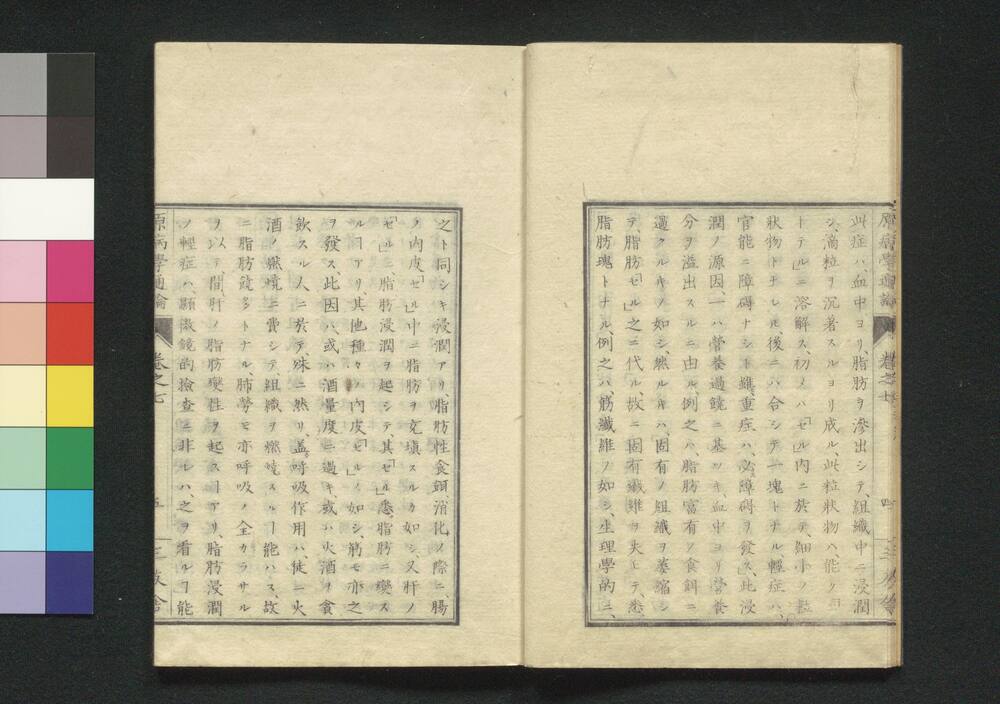 此症ハ血中ヨリ脂肪ヲ滲出シテ、組織中ニ浸潤
シ、滴粒ヲ沉著スルヨリ成ル、此粒状物ヘ、能ク「コ
トテル」ニ溶解ス、初メハ「ゼル」内ニ於テ、細小ノ
狀物トナレル、後ニハ合シテ一塊トナル、輕症ハ、
官能ニ障碍ナシト雖、重症ハ、必障碍ヲ發ス、此浸
潤ノ源因、一ハ營養過饒ニ基ツキ、血中ヨリ營養
分ヲ溢出スルニ由ル、例之ハ、脂肪富有ノ食餌ニ
過クルキノ如シ、然ルキハ、固有ノ組織ヲ萎縮シ
テ、脂肪「ゼル」之ニ代ル、故ニ固有纖維ヲ失エテ、悉
脂肪塊トナル、例之ハ筋纖維ノ如シ、生理學的ニ、
原病學通論 卷之七
之ト同シキ浸潤アリ、脂肪性食餌、消化ノ際ニ、腸
ノ内皮「ゼル」中ニ脂肪ヲ充塡スルカ如シ、又肝ノ
「ゼル」ニ、脂肪浸潤ヲ起シテ其「ゼル」悉脂肪ニ變ス
ルヿアリ、其他種々ノ内皮「ゼル」ノ如シ、筋モ亦之
ヲ發ス、此因ハ、或ハ酒量度ニ過キ、或ハ火酒ヲ貪
飲スルノ人ニ於テ、殊ニ然リ、蓋呼吸作用ハ、徒ニ火
酒ノ燃燒ニ費シテ、組織ヲ燃燒スルヿ能ハス、故
ニ脂肪饒多トナル、肺勞モ亦呼吸ノ全カラサル
ヲ以テ、間肝ノ脂肪變性ヲ起スヿアリ、脂肪浸潤
ノ輕症ハ、顯微鏡的撿査ニ非レハ、之ヲ看ルヿ能
原病學通論 卷之七